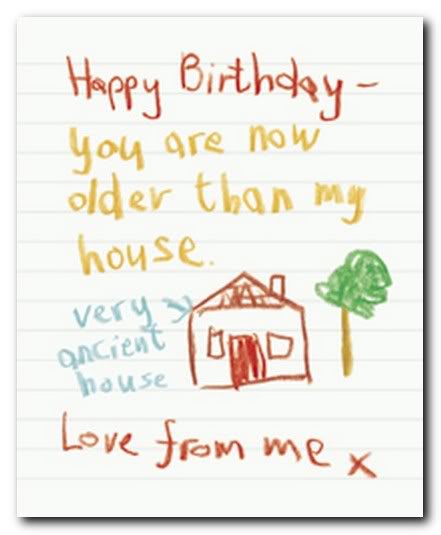 Happy Birthday –
you are now
older than my
house.
very
ancient
house
Love from me x